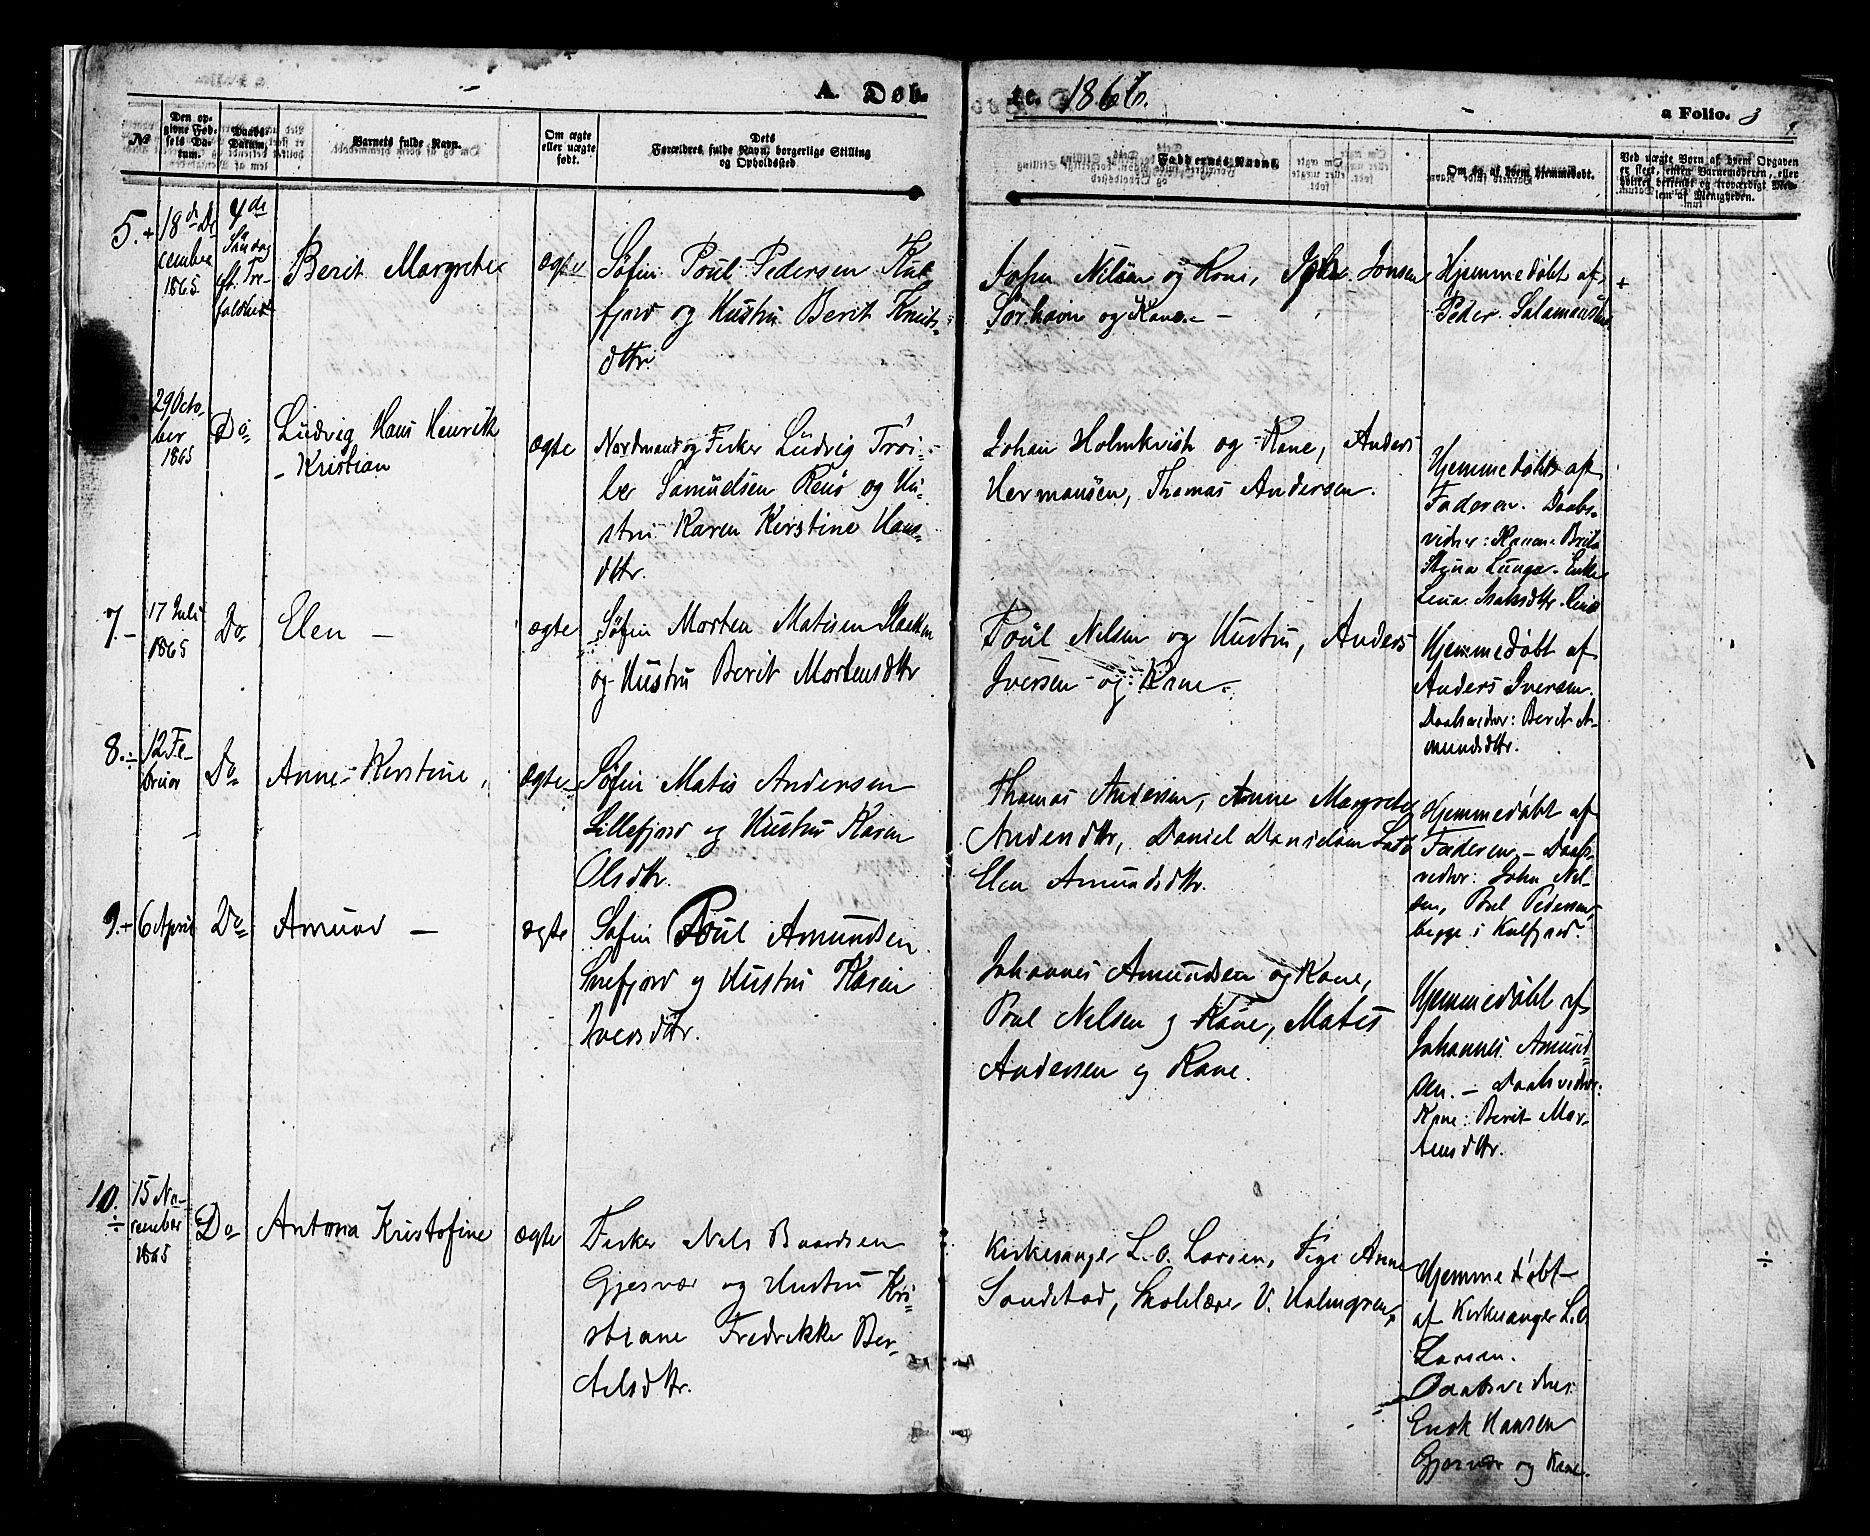 A. Døb-
te. 1866.
a Folio. 3
№
Den op-
givne Fød-
sels Da-
tum.
Daabs-
Datum.
Barnets fulde Navn.
Om ægte
eller uægte
født.
Dets
Forældres fulde Navn, borgerlige Stilling
og Opholdssted.
Faddernes Navne
Om og af hvem hjemmedøbt.
Ved uægte Børn af hvem Opgaven
er skeet, enten Barnemoderen, eller
5. +
18 de De
cember
1865.
4de
Søndag
eft. Tre-
foldhed
Berit Margrethe
ægte
Søfin Poul Pedersen Kul
fjord og Hustru Berit Knuts-
dttr.
John Nilsen og Kone, John Jonsen
Sörhavn og Kone. -
Hjemmedøbt af
Peder Salamonsen
+
29 Octo-
ber
1865
Do
Ludvig Hans Henrik
- Kristian
ægte
Nordmand og Fisker Ludvig Trøi-
ber Samuelsen Renö og Hu-
stru Karen Kerstine Hans-
dttr.
Johan Holmkvist og Kone, Anders
Hermansen, Thomas Andersen.
Hjemmedøbt af
Faderen. Daabs-
vidner: Konen Brita
Stina Lunga. Enke
Lena Isaksdttr. Renö
7. -
17 Juli
1865
Do
Elen -
ægte
Søfin Morten Matisen
og Hustru Berit Mortensdttr
Poul Nelsen og Hustru, Anders
Iversen og Kone.
Hjemmedøbt af
Anders Iversen.
Daabsvidner: Berit A-
mundsdttr.
8. ÷
12 Fe-
bruar
Do
Anne Kerstine,
ægte
Søfin Matis Andersen
Lillefjord og Hustru Karen
Olsdttr.
Thomas Andersen, Anne Margrethe
Andersdttr, Daniel Danielsen
Elen Amundsdttr.
Hjemmedøbt af
Faderen - Daabs-
vidner: John Nel-
sen, Poul Pedersen,
begge i Kulfjord.
9. +
6 April
Do
Amund -
ægte
Søfin Poul Amundsen
Snefjord og Hustru Karen
Iversdttr.
Johannes Amundsen og Kone,
Poul Nelsen og Kone, Matis
Andersen og Kone.
Hjemmedøbt af
Johannes Amund-
sen. - Daabsvidner:
Kone: Berit Mor-
tensdttr.
10.
÷
15 No-
vember
1865
Do
Antona Kristofine
ægte
Fisker Nels Baardsen
Gjesvær og Hustru Kri-
stiane Fredrikke Ber-
telsdttr.
Kirkesanger L. O. Larsen, Pige Anne
Sandstad, Skolelærer V. Holmgren,
Hjemmedøbt
af Kirkesanger L. O.
Larsen.
Daabsvidner
Erik Hansen
Gjesvær og Kone.
÷